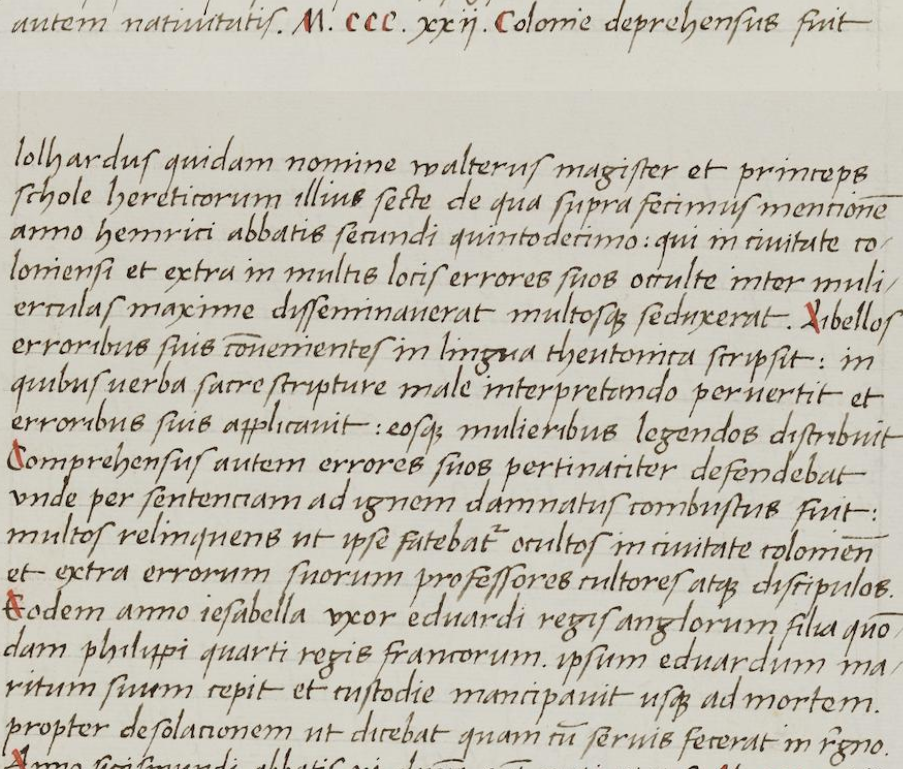 autem nativitatis. M. CCC. xxij. Colonie deprehensus fuit
lolhardus quidam nomine walterus magister et princeps
schole hereticorum illius secte de qua supra fecimus mencionē
anno hemrici abbatis secundi quintodecimo: qui in civitate co/
loniensi et extra in multis locis errores suos occulte inter muli/
erculas maxime disseminaverat multosqꝫ seduxerat. Libellos
erroribus suis cōvenientes in lingua theutonica scripsit: in
quibus verba sacre scripture male interpretando pervertit et
erroribus suis applicavit: eosqꝫ mulieribus legendos distribuit
Comprehensus autem errores suos pertinaciter defendebat
vnde per sentenciam ad ignem damnatus combustus fuit:
multos relinquens ut ipse fatebat᷑ ocultos in civitate coloniēn
et extra errorum suorum professores cultores atqꝫ discipulos.
Eodem anno iesabella vxor eduardi regis anglorum filia quō/
dam philippi quarti regis francorum. ipsum eduardum ma/
ritum suum cepit et custodie mancipavit usqꝫ ad mortem.
propter desolacionem ut dicebat quam cū servis fecerat in r̄gno.
Anno sigismundi abbatis